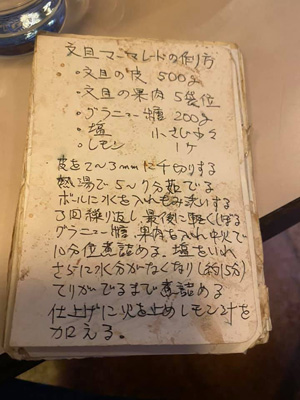 文旦マーマレードの作り方
・文旦の皮 500g
・文旦の果肉 5袋位
・グラニュー糖 200g
・塩 小さじ
・レモン 1ケ
皮を2〜3mmに千切りする
熱湯で5〜7分茹でる
ボールに水を入れもみ洗いする
3回繰り返し、最後に軽くしぼる
グラニュー糖、果肉を入れ中火で
10分位煮詰める。塩をいれ
さらに水分がなくなり(約15分)
てりがでるまで煮詰める
仕上げに火を止めレモン汁を
加える。